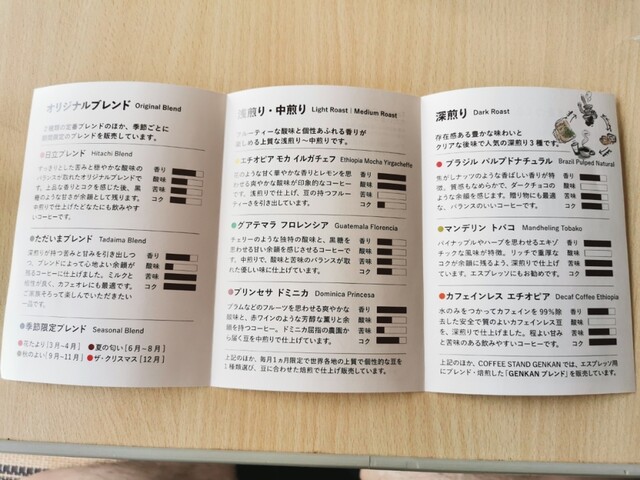 オリジナルブレンド Original Blend
2種類の定番ブレンドのほか、季節ごとに
期間限定のブレンドを販売しています。
●日立ブレンド Hitachi Blend
すっきりとした苦みと穏やかな酸味の
バランスが取れたオリジナルブレンドで
す。上品な香りとコクを感じた後、黒
糖のような甘さが余韻として残ります。
中煎りで仕上げたどなたにも飲みやす
いコーヒーです。
香り
酸味
苦味
コク
●ただいまブレンド Tadaima Blend
深煎りが持つ苦みと甘みを引き出しつつ
も、ブレンドによって心地よい余韻が
残るコーヒーに仕上げました。ミルクと
の相性が良く、カフェオレにも最適です。
ご家族そろって楽しんでいただきたい
一品です。
香り
酸味
苦味
コク
●季節限定ブレンド Seasonal Blend
●花たより[3月-4月] ●夏の匂い[6月-8月]
●秋のよい[9月-11月] ●ザ・クリスマス[12月]
浅煎り・中煎り Light Roast | Medium Roast
フルーティーな酸味と個性あふれる香りが
楽しめる上質な浅煎り〜中煎りです。
●エチオピア モカ イルガチェフ Ethiopia Mocha Yirgacheffe
花のような甘く華やかな香りとレモンを思
わせる爽やかな酸味が印象的なコーヒー
です。浅煎りで仕上げ、豆の持つフルー
ティーさを引き出しています。
香り
酸味
苦味
コク
●グアテマラ フロレンシア Guatemala Florencia
チェリーのような独特の酸味と、黒糖を
思わせる甘い余韻を感じさせるコーヒー
です。中煎りで、酸味と苦味のバランスが取
れた優しい味に仕上げています。
香り
酸味
苦味
コク
●プリンセサ ドミニカ Dominica Princesa
プラムなどのフルーツを思わせる爽やかな
酸味と、赤ワインのような芳醇な薫りと余
韻を持つコーヒー。ドミニカ屈指の農園か
ら届く豆を中煎りで仕上げています。
香り
酸味
苦味
コク
上記のほか、毎月1ヵ月限定で世界各地の上質で個性的な豆を
1種類選び、豆に合わせた焙煎で仕上げ販売しています。
深煎り Dark Roast
存在感ある豊かな味わいと
クリアな後味で人気の深煎り3種です。
●ブラジル パルプドナチュラル Brazil Pulped Natural
焦がしナッツのような香ばしい香りが特
徴。質感もなめらかで、ダークチョコの
ような余韻を感じます。贈り物にも最適
な、バランスのいいコーヒーです。
香り
酸味
苦味
コク
●マンデリン トバコ Mandheling Tobako
パイナップルやハーブを思わせるエキゾ
チックな風味が特徴。リッチで重厚な
コクが余韻に残るよう、深煎りで仕上げ
ています。エスプレッソにもお勧めです。
香り
酸味
苦味
コク
●カフェインレス エチオピア Decaf Coffee Ethiopia
水のみをつかってカフェインを99%除
去した安全で質のよいカフェインレス豆
を、深煎りで仕上げました。程よい甘み
と苦味のある飲みやすいコーヒーです。
香り
酸味
苦味
コク
上記のほか、COFFEE STAND GENKANでは、エスプレッソ用
にブレンド・焙煎した「GENKANブレンド」を販売しています。